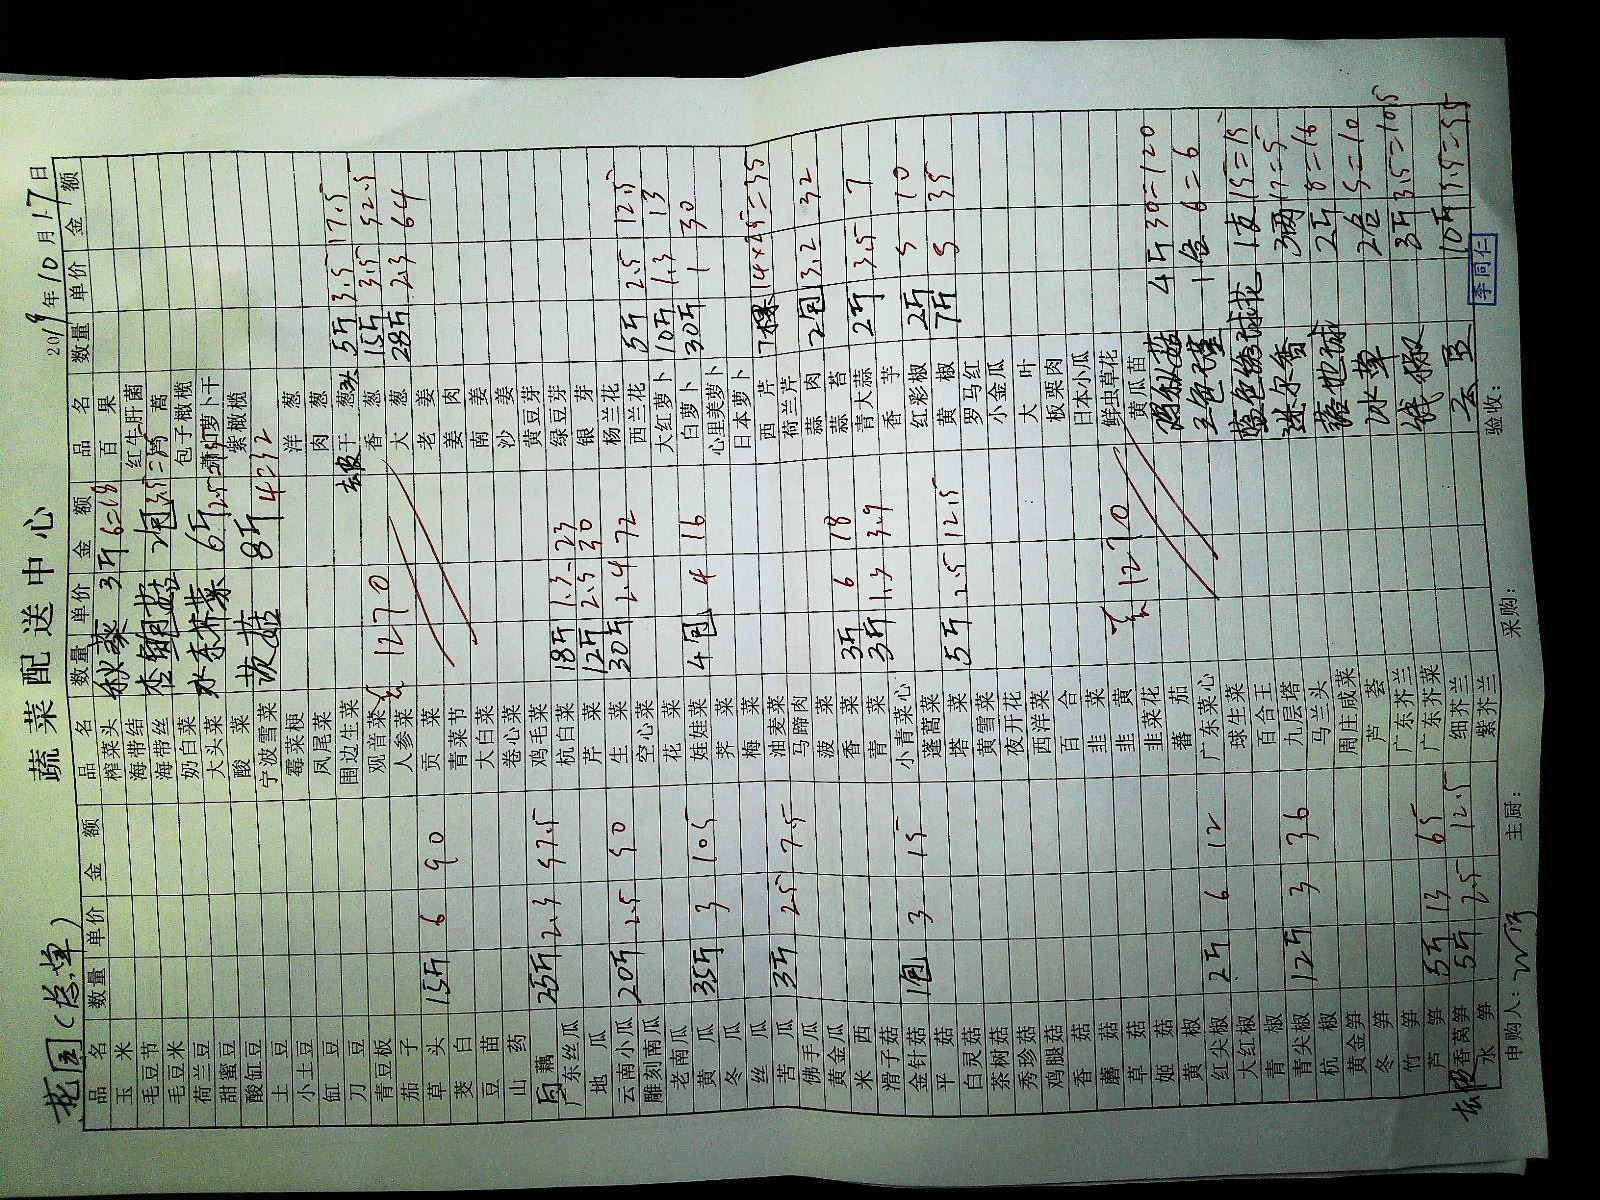 蔬菜配送中心
托园(总单) 2019年10月17日
品名 数量 单价 金额
玉米
毛豆节
毛豆米
荷兰豆
甜蜜豆
酸缸豆
土豆
小土豆
缸豆
刀豆
青豆板
茄子
草头 15斤 6 90
茭白
豆苗
山药
藕 25斤 2.3 57.5
广东丝瓜
地瓜
云南小瓜 20斤 2.5 50
雕刻南瓜
老南瓜
黄瓜 35斤 3 105
冬瓜
丝瓜
苦瓜 3斤 2.5 7.5
佛手瓜
黄金瓜
米西
滑子菇
金针菇 1包 3 15
平菇
白灵菇
茶树菇
秀珍菇
鸡腿菇
香菇
蘑菇
草菇
姬菇
黄椒
红尖椒 2斤 6 12
大红椒
青椒
青尖椒 12斤 3 36
杭椒
黄金笋
冬笋
竹笋
芦笋 5斤 13 65
去皮香莴笋 5斤 2.5 12.5
水笋
品名 数量 单价 金额
榨菜头 秋葵 3斤 6=18
海带结
海带丝 杏鲍菇 2包
奶白菜
大头菜 水东芥菜 6斤
酸菜
宁波雪菜 茨菇 8斤 4 32
霉菜梗
凤尾菜
围边生菜
观音菜
人参菜 1270
贡菜
青菜节
大白菜
卷心菜
鸡毛菜
杭白菜 18斤 1.3 23
芹菜 12斤 2.5 30
生菜 30斤 2.4 72
空心菜
花菜
娃娃菜 4包 4 16
荠菜
梅菜
油麦菜
马蹄肉
菠菜
香菜 3斤 6 18
青菜 3斤 1.3 3.9
小青菜心
蓬蒿菜
塔菜 5斤 2.5 12.5
黄雪菜
夜开花
西洋菜
百合
韭菜
韭黄 1270
韭菜花
蕃茄
广东菜心
球生菜
百合王
九层塔
马兰头
周庄咸菜
芦荟
广东芥兰
广东芥菜
细芥兰
紫芥兰
品名 数量 单价 金额
百果
红牛肝菌
茼蒿
包子橄榄
萝卜干
紫橄榄
洋葱
肉葱
去皮干葱头 5斤 3.5 17.5
香葱 15斤 3.5 52.5
大葱 28斤 2.3 64
老姜
姜肉
南姜
沙姜
黄豆芽
绿豆芽
银芽
杨兰花
西兰花 5斤 2.5 12.5
大红萝卜 10斤 1.3 13
白萝卜 30斤 1 30
心里美萝卜
日本萝卜
西芹 7棵 14×2.5=35
荷兰芹
蒜肉 2包 3.2 32
蒜苔
青大蒜 2斤 3.5 7
香芋
红彩椒 2斤 5 10
黄椒 7斤 5 35
罗马红
小金瓜
大叶
板栗肉
日本小瓜
鲜虫草花
黄瓜苗
4斤 30=120
三色堇 1盒 6=6
蓝色绣球花 1支 15=15
迷尔香 3两 17=5
2斤 8=16
冰草 2盒 5=10
线椒 3斤 3.5=10.5
云豆 10斤 5.5=55
申购人: 主厨: 采购: 验收: 李同仁